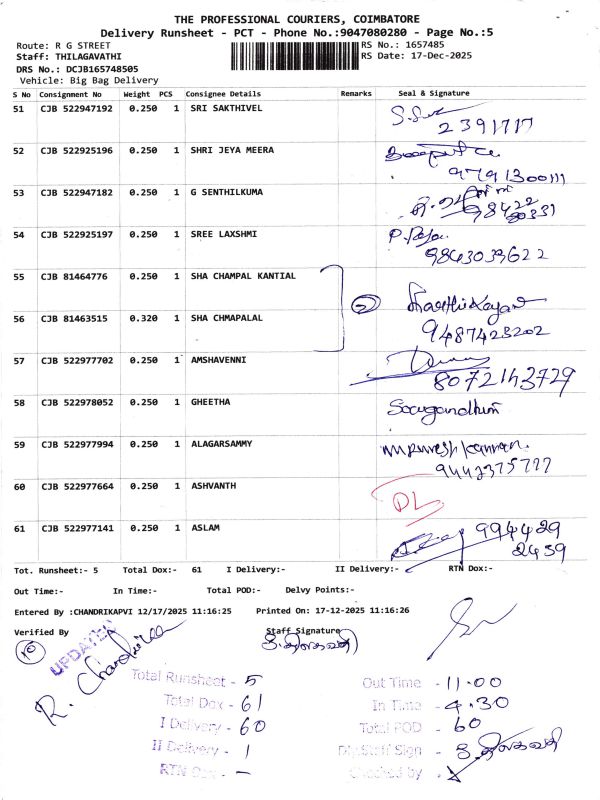 THE PROFESSIONAL COURIERS, COIMBATORE
Delivery Runsheet - PCT - Phone No.:9047080280 - Page No.:5
Route: R G STREET RS No.: 1657485
Staff: THILAGAVATHI RS Date: 17-Dec-2025
DRS No.: DCJB165748505
Vehicle: Big Bag Delivery
S No Consignment No Weight PCS Consignee Details Remarks Seal & Signature
51 CJB 522947192 0.250 1 SRI SAKTHIVEL
2391717
52 CJB 522925196 0.250 1 SHRI JEYA MEERA
53 CJB 522947182 0.250 1 G SENTHILKUMA
54 CJB 522925197 0.250 1 SREE LAXSHMI
9843039622
55 CJB 81464776 0.250 1 SHA CHAMPAL KANTIAL
2
56 CJB 81463515 0.320 1 SHA CHMAPALAL
9487423202
57 CJB 522977702 0.250 1 AMSHAVENNI
8072143729
58 CJB 522978052 0.250 1 GHEETHA
59 CJB 522977994 0.250 1 ALAGARSAMMY
60 CJB 522977664 0.250 1 ASHVANTH DL
61 CJB 522977141 0.250 1 ASLAM 994429
2439
Tot. Runsheet:- 5 Total Dox:- 61 I Delivery:- II Delivery:- RTN Dox:-
Out Time:- In Time:- Total POD:- Delvy Points:-
Entered By :CHANDRIKAPVI 12/17/2025 11:16:25 Printed On: 17-12-2025 11:16:26
Verified By Staff Signature
UPDATED
Total Runsheet - 5 Out Time - 11.00
Total Dox - 61 In Time - 4.30
I Delivery - 60 Total POD - 60
II Delivery - 1 Dly.Staff Sign - தி.திலகவதி
RTN Dox - — Checked by -